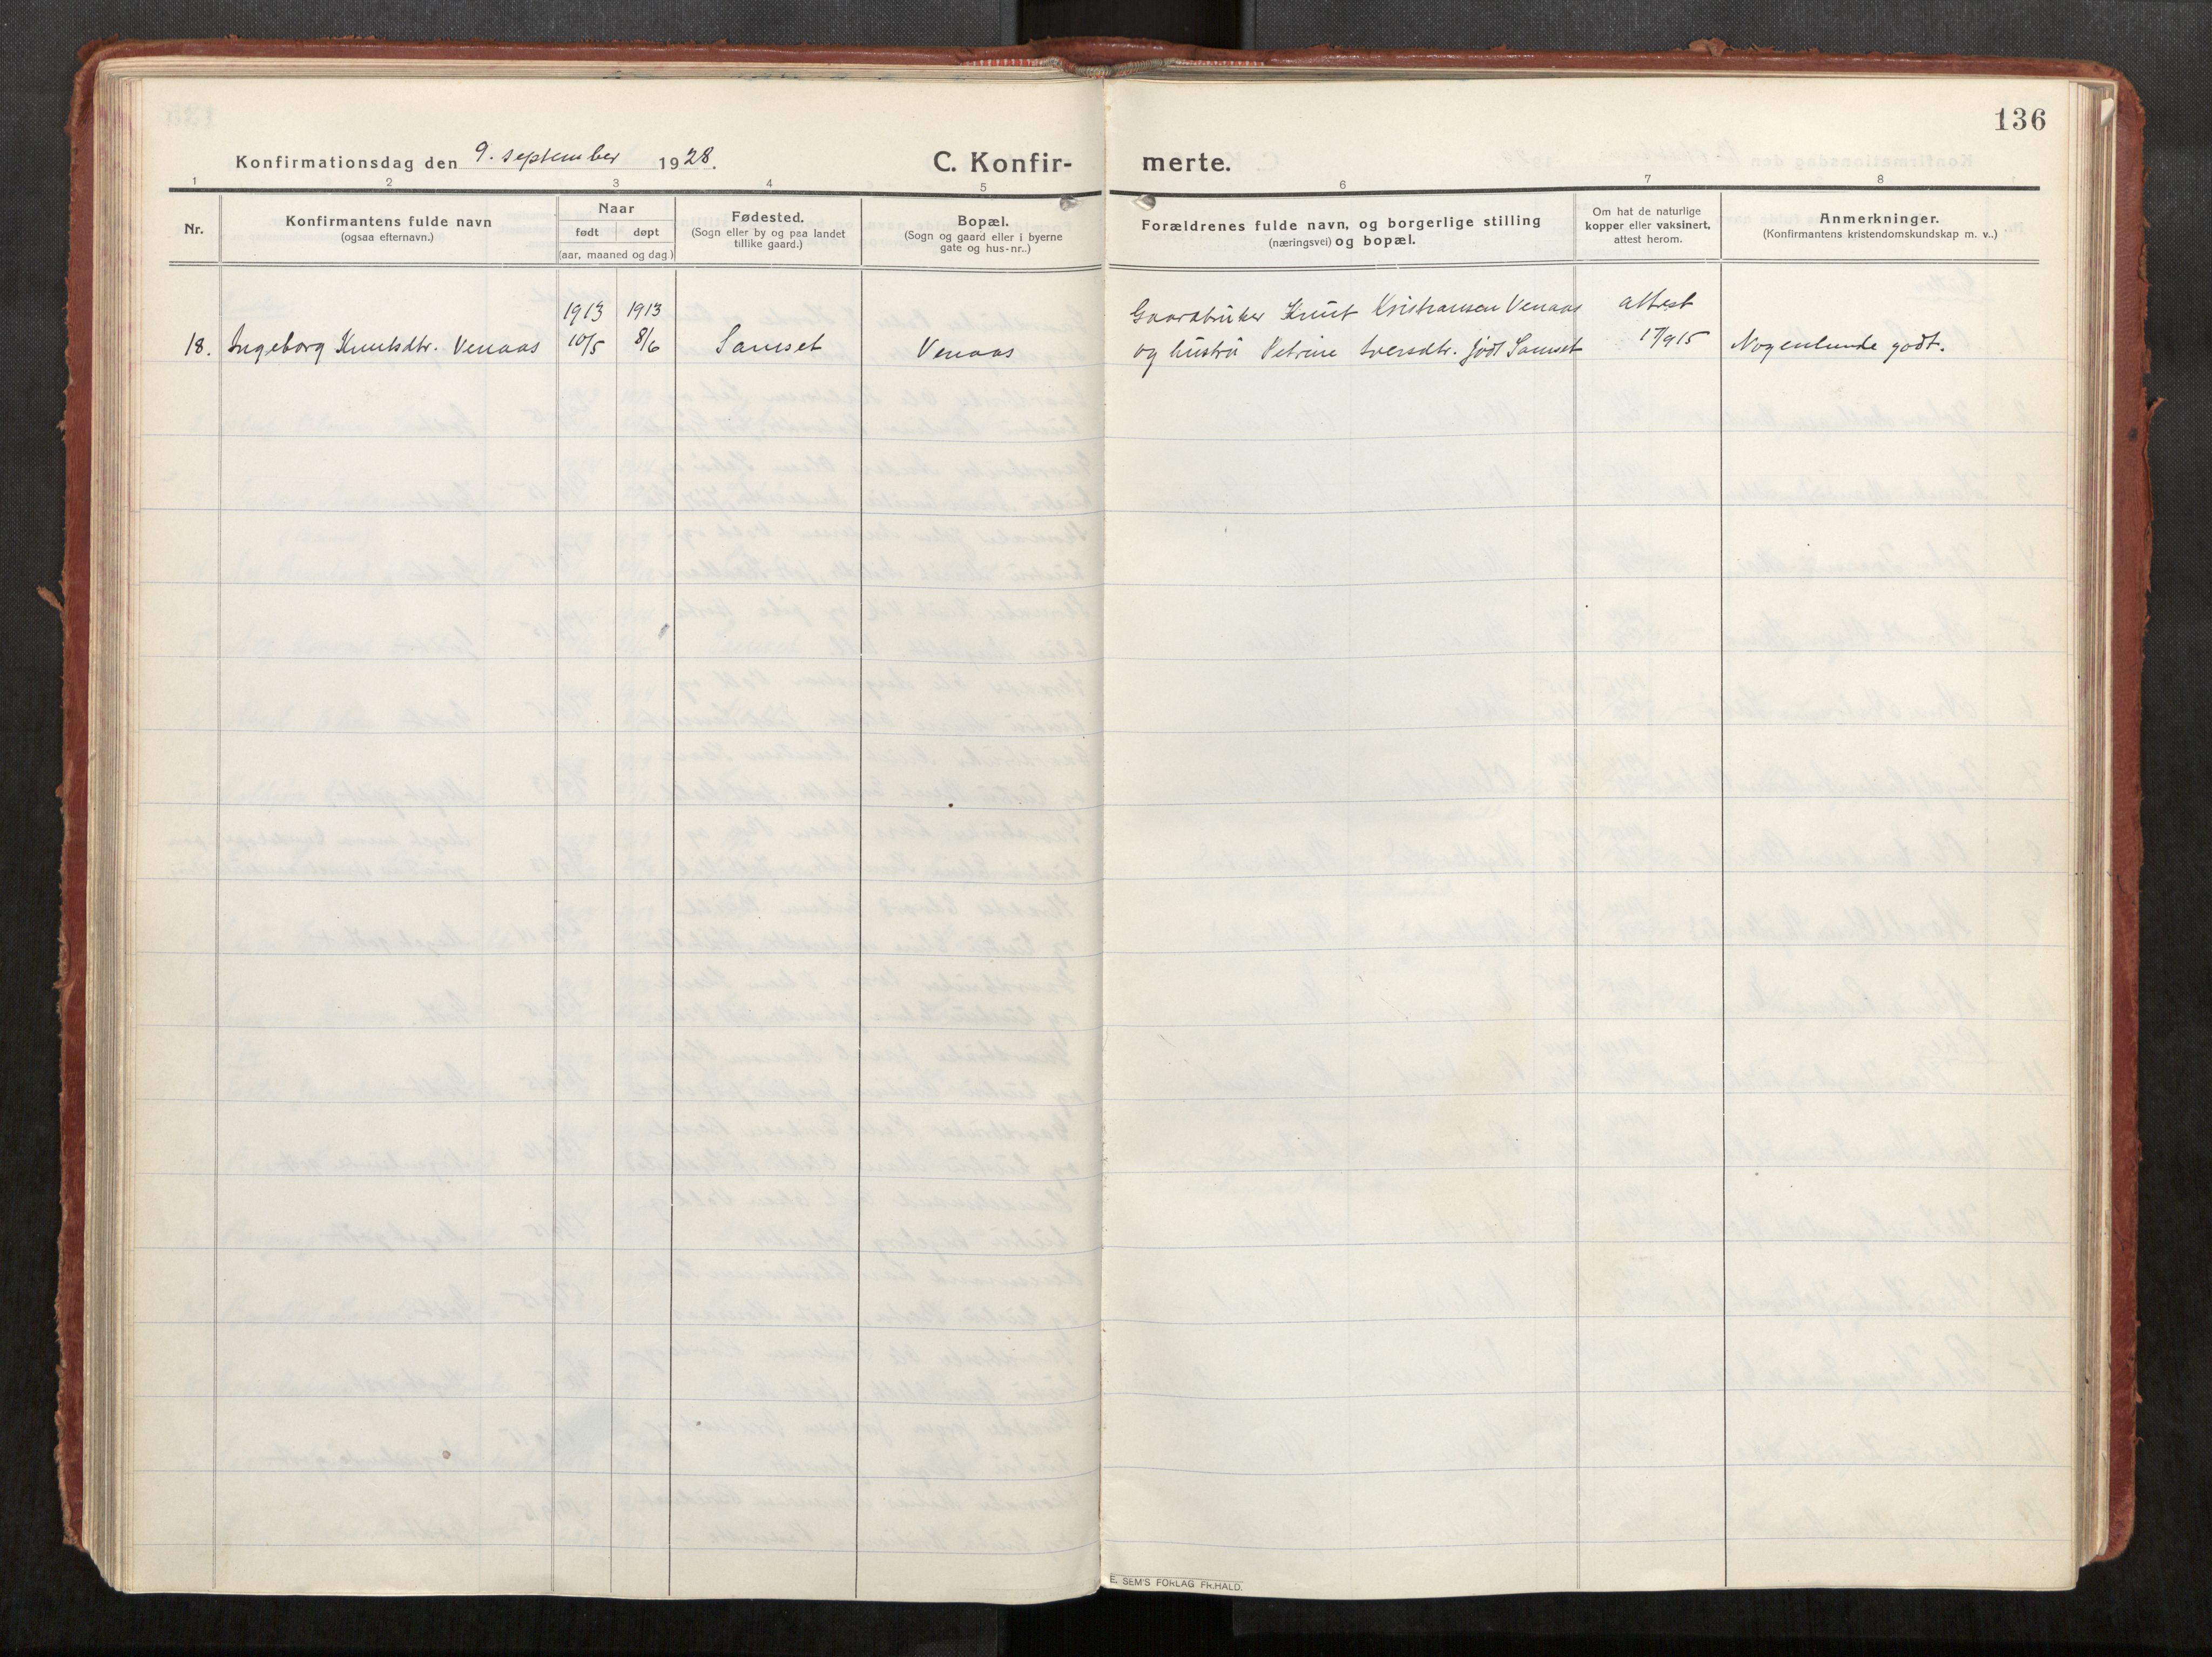 136
Konfirmationsdag den 9. september 1928.
C. Konfir-
merte.
1 2 3 4 5 6 7 8
Nr.
Konfirmantens fulde navn
(ogsaa efternavn.)
Naar
født døpt
(aar, maaned og dag.)
Fødested.
(Sogn eller by og paa landet
tillike gaard.)
Bopæl.
(Sogn og gaard eller i byerne
gate og hus-nr..)
Forældrenes fulde navn, og borgerlige stilling
(næringsvei) og bopæl.
Om hat de naturlige
kopper eller vaksinert,
attest herom.
Anmerkninger.
(Konfirmantens kristendomskundskap m. v..)
1913 1913 Gaardbruker Knut Kristiansen Venaas attest
18. Ingeborg Knutsdtr. Venaas 10/5 8/6 Samset Venaas og hustru Petrine Iversdtr. født Samset 17/915 Nogenlunde godt.
E. SEM'S FORLAG FR.HALD.